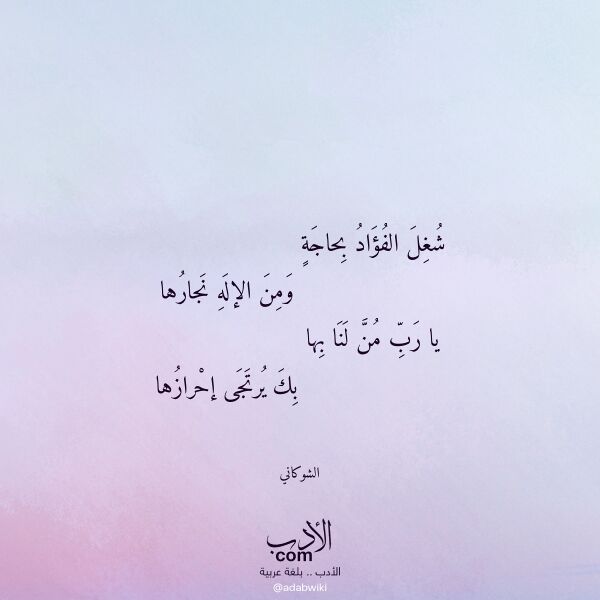 شُغِلَ الفُؤَادُ بِحاجَةٍ
وَمِنَ الإلَهِ نَجارُها
يا رَبِّ مُنَّ لَنَا بِها
بِكَ يُرتَجَى إحْرازُها
الشوكاني
الأدب
.com
الأدب .. بلغة عربية
@adabwiki